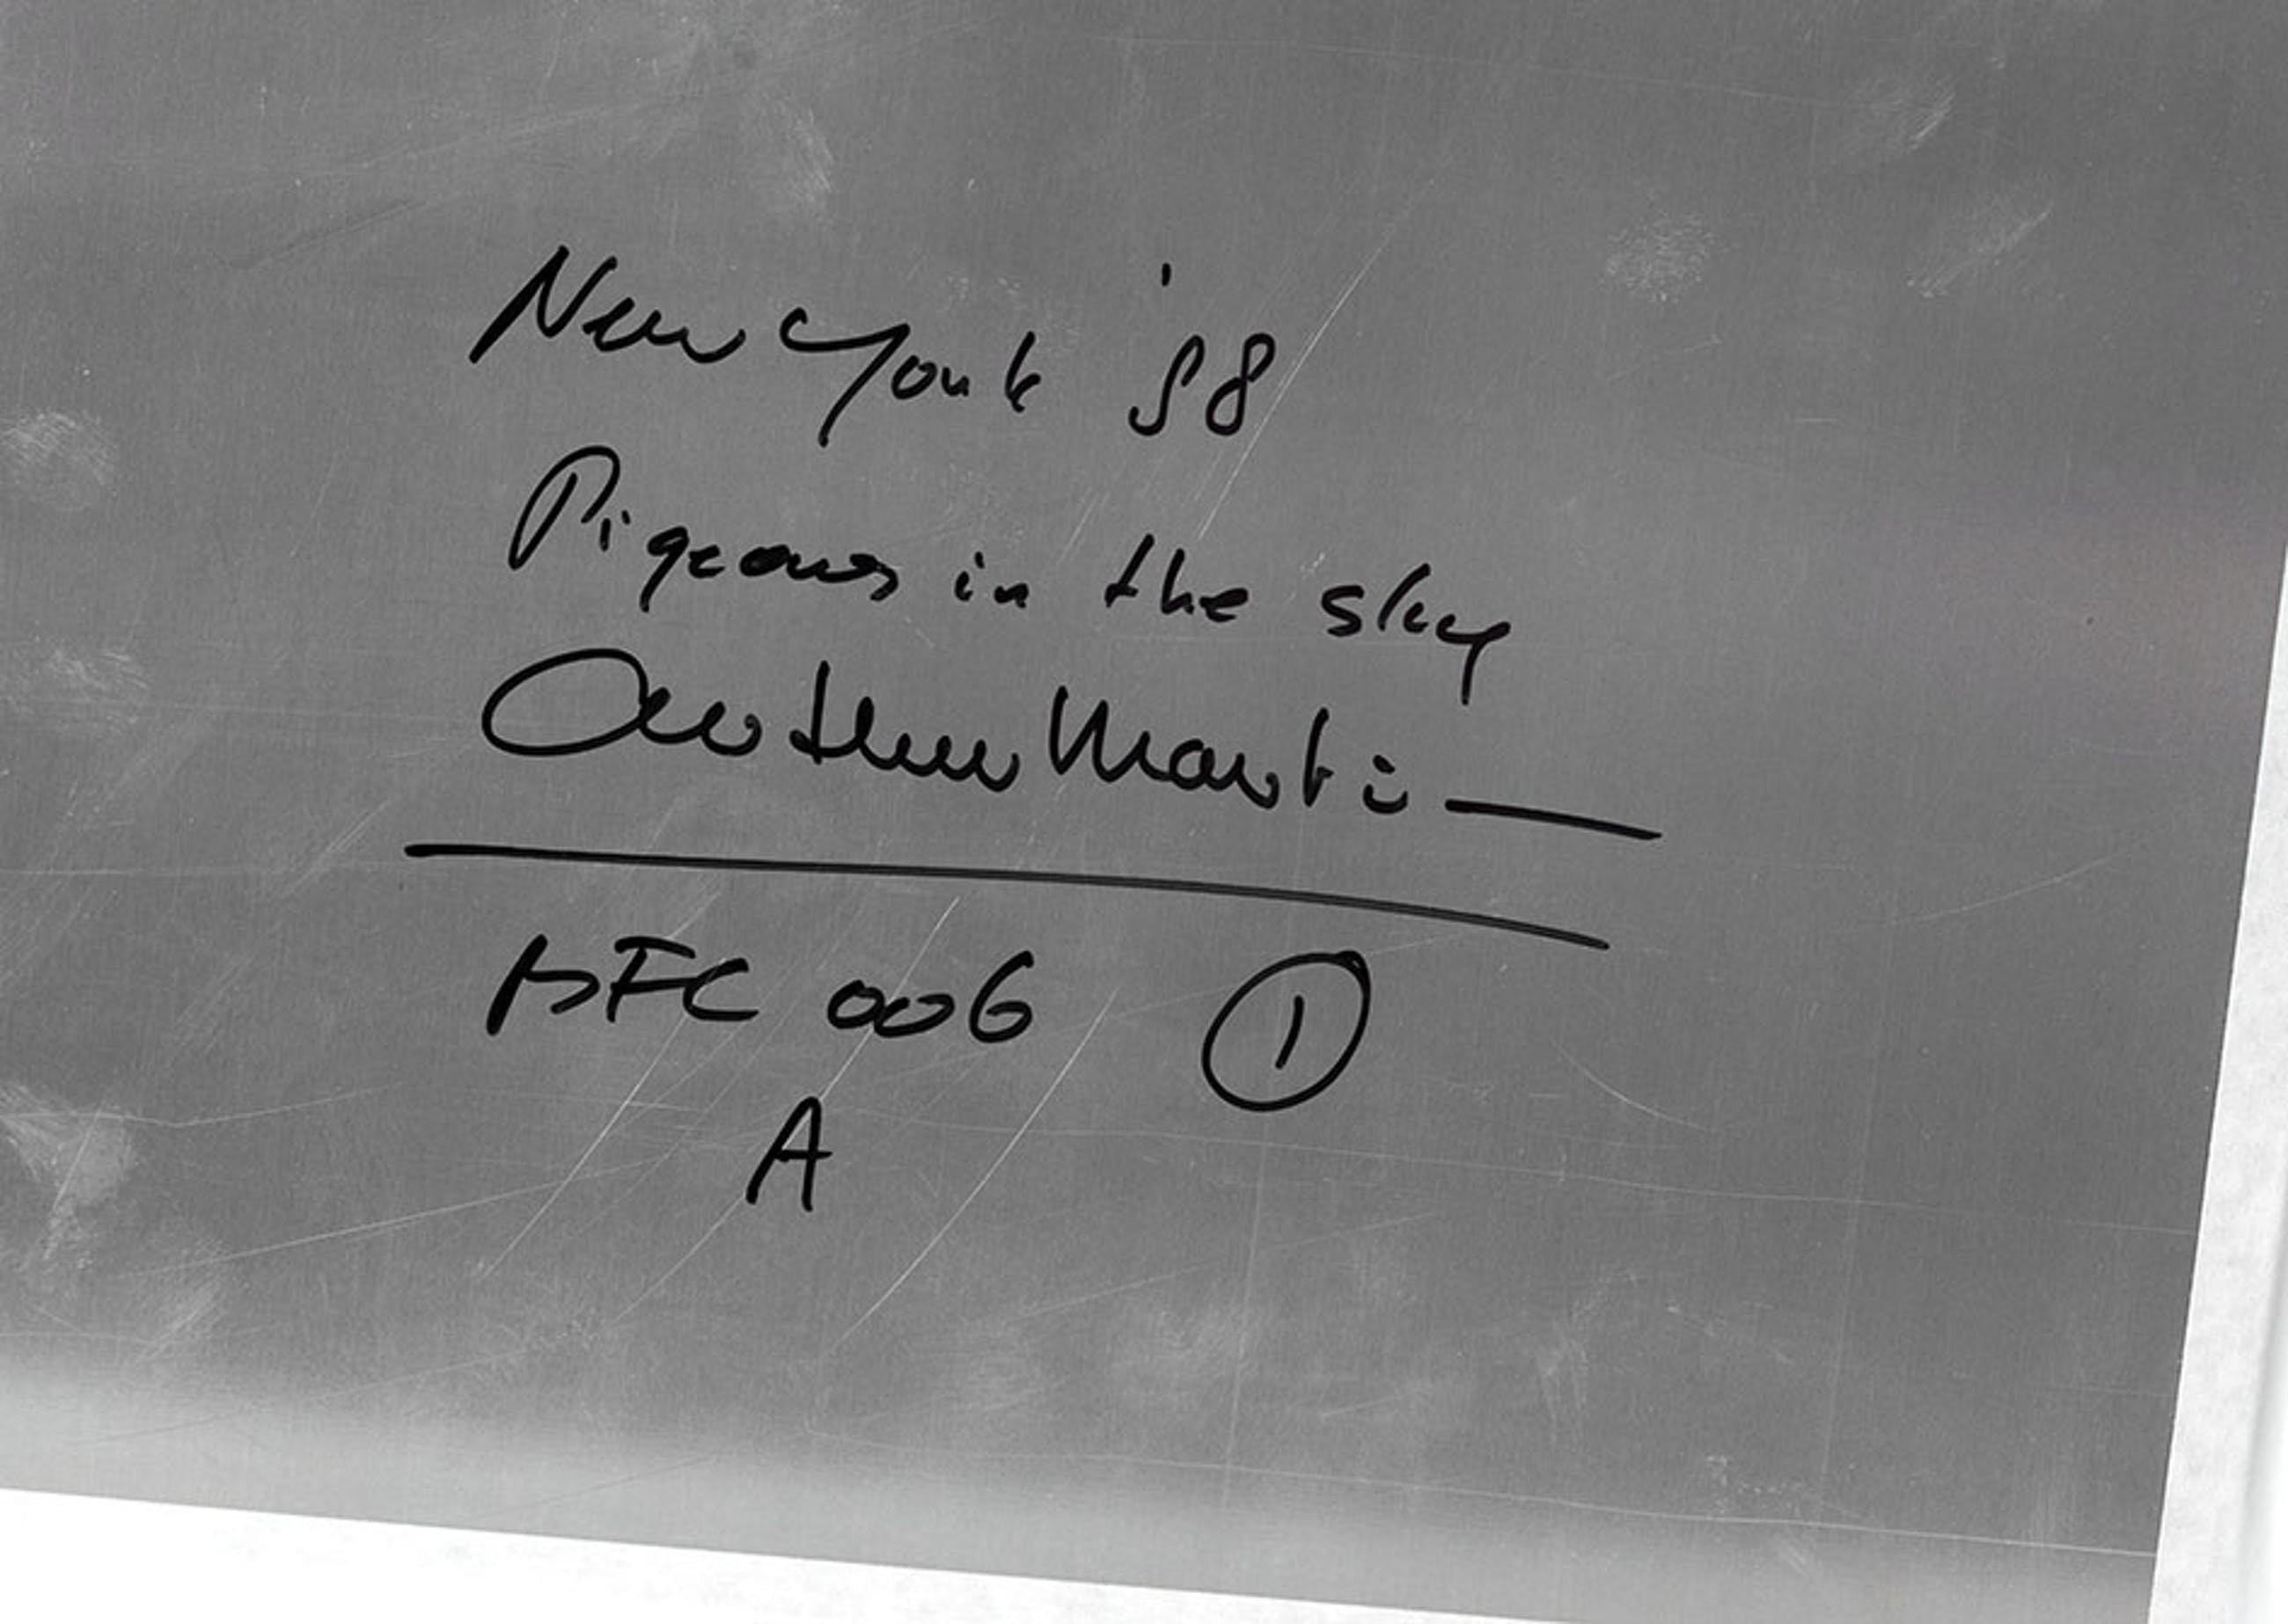 New York '98
Pigeons in the sky
Arthur Marti
AFC 006 ①
A